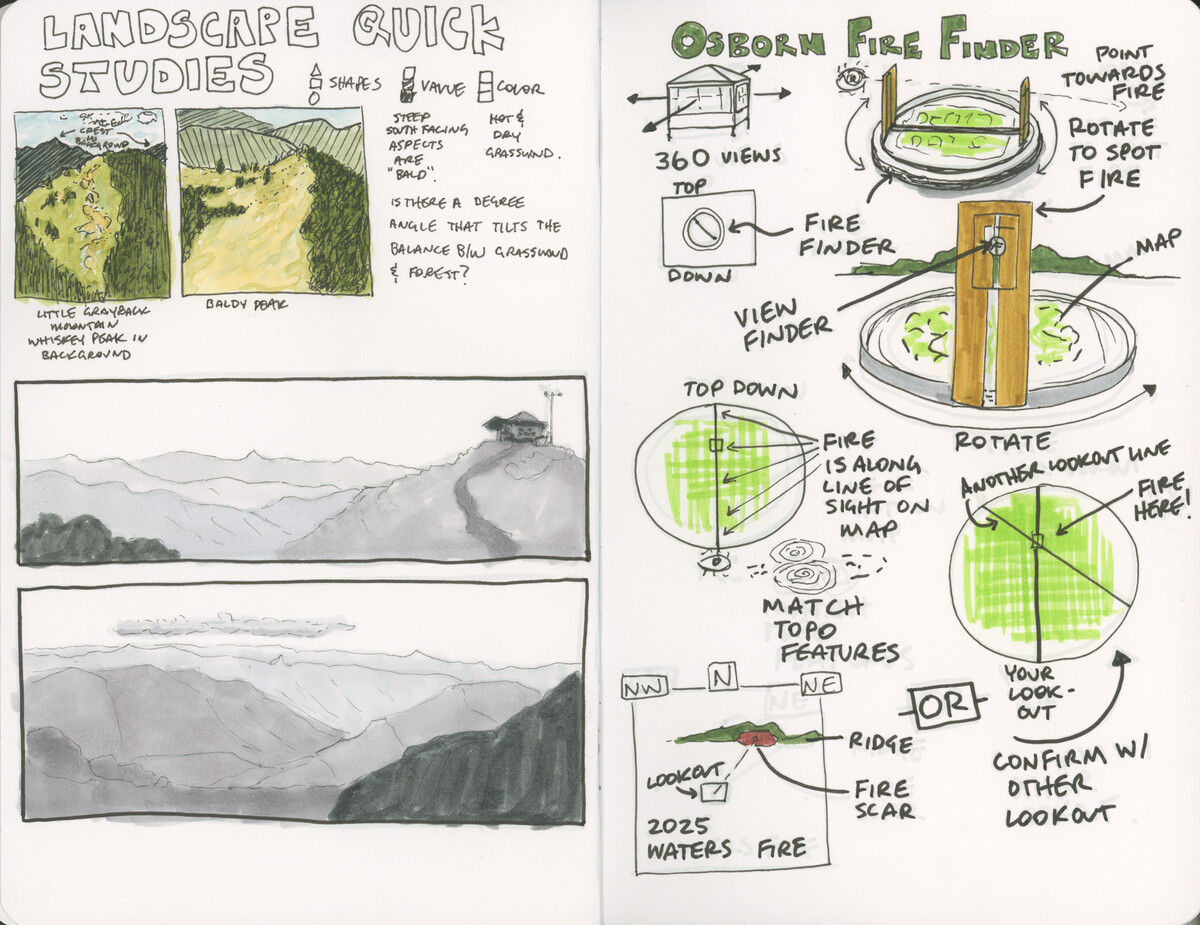 LANDSCAPE QUICK
STUDIES
SHAPES
VALUE
COLOR
CREST
IN
BACKGROUND
LITTLE GRAYBACK
MOUNTAIN
WHISKEY PEAK IN
BACKGROUND
BALDY PEAK
STEEP
SOUTH FACING
ASPECTS
ARE
"BALD".
HOT &
DRY
GRASSLAND.
IS THERE A DEGREE
ANGLE THAT TILTS THE
BALANCE B/W GRASSLAND
& FOREST?
OSBORN FIRE FINDER
360 VIEWS
POINT
TOWARDS
FIRE
ROTATE
TO SPOT
FIRE
TOP
DOWN
FIRE
FINDER
VIEW
FINDER
MAP
ROTATE
TOP DOWN
FIRE
IS ALONG
LINE OF
SIGHT ON
MAP
MATCH
TOPO
FEATURES
ANOTHER LOOKOUT LINE
FIRE
HERE!
YOUR
LOOK-
OUT
OR
CONFIRM W/
OTHER
LOOKOUT
NW
N
NE
RIDGE
LOOKOUT
FIRE
SCAR
2025
WATERS FIRE